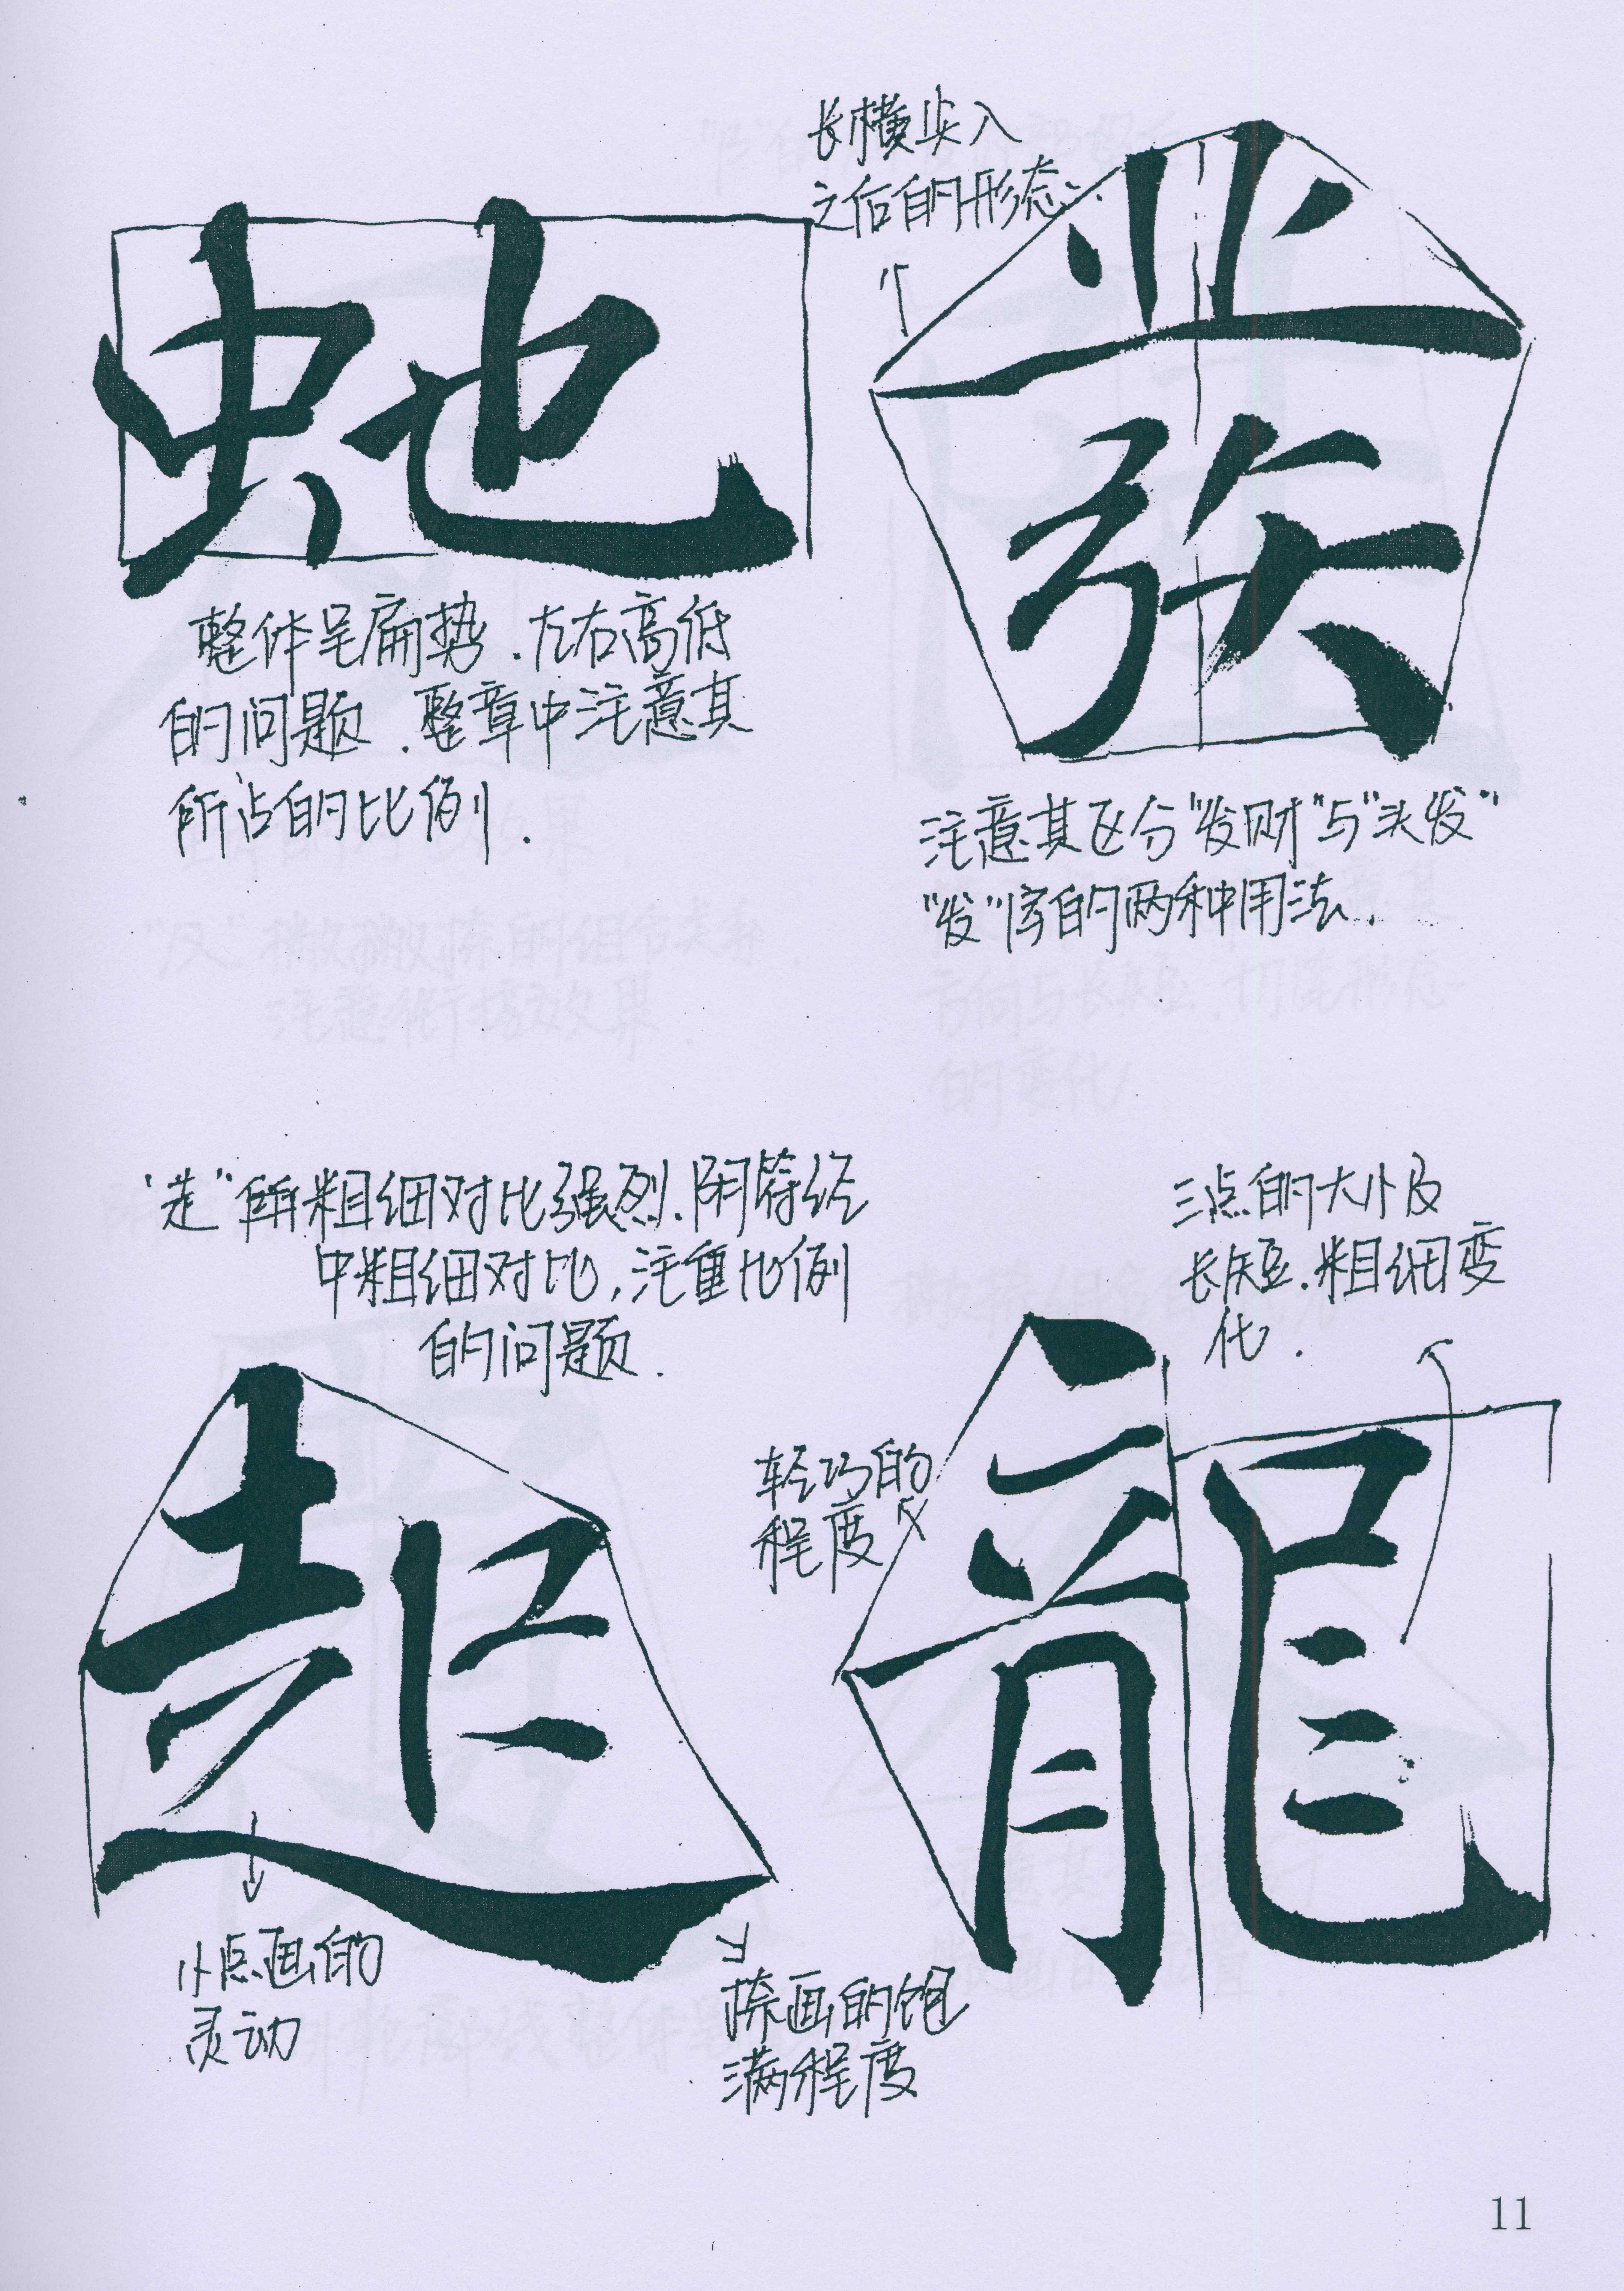 虵
整体呈扁势.左右高低
的问题.整章中注意其
所占的比例.
长横尖入
之后的形态.
發
注意其区分"发财"与"头发"
"发"字的两种用法.
"走"部粗细对比强烈.阴符经
中粗细对比,注重比例
的问题.
起
小点画的
灵动
捺画的饱
满程度
三点的大小及
长短.粗细变
化.
轻巧的
程度
龍
11